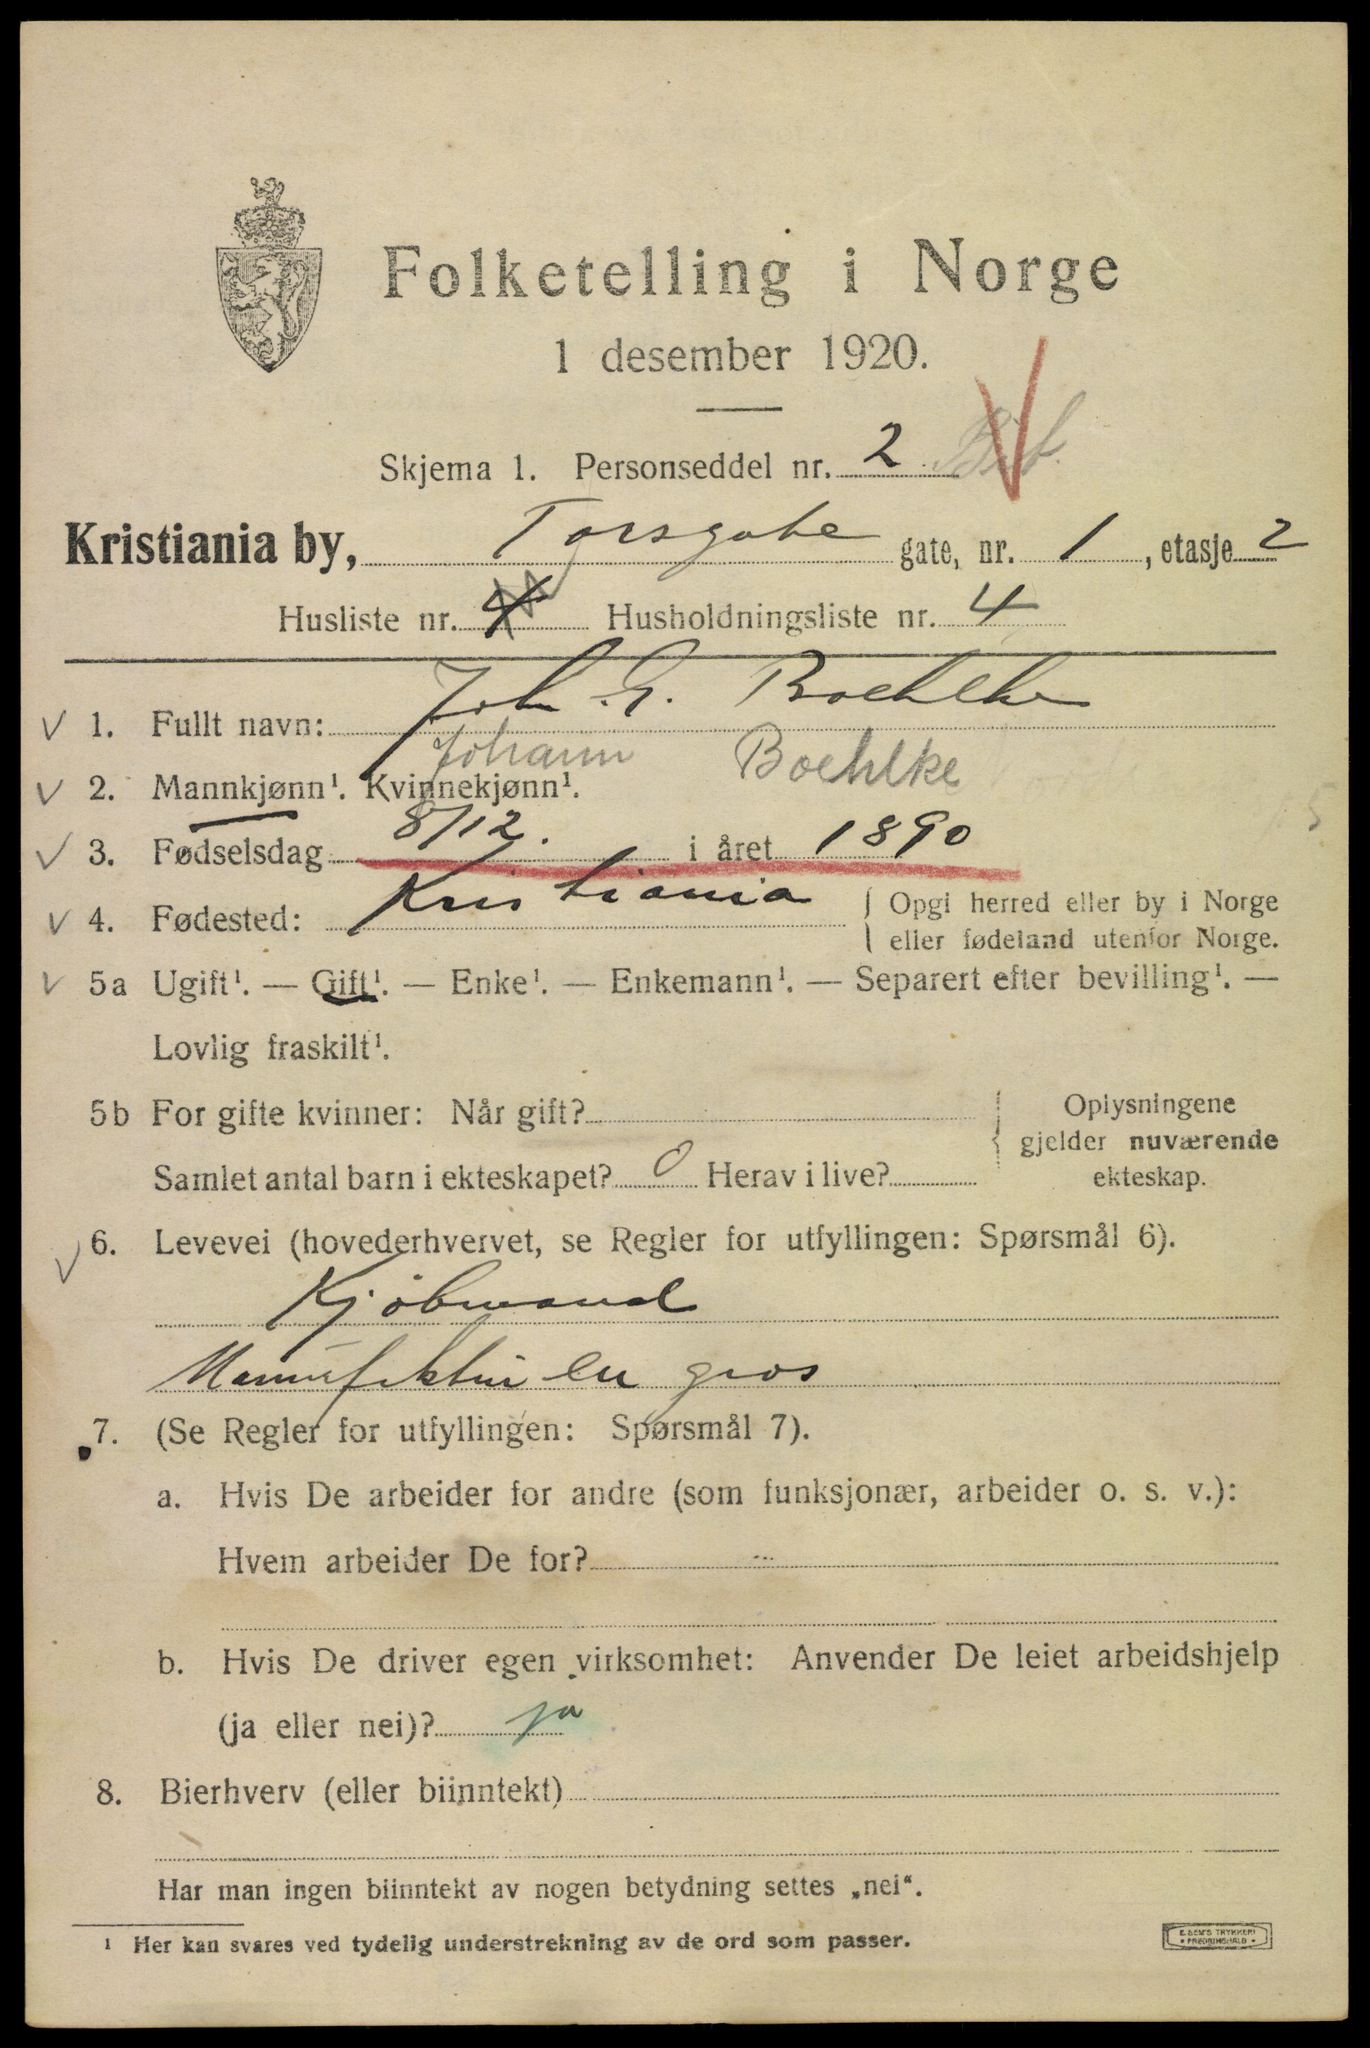 Folketelling i Norge
1 desember 1920.
Skjema 1. Personseddel nr. 2
Kristiania by, Torsgate gate, nr. 1, etasje 2
Husliste nr. 4 Husholdningsliste nr. 4
1. Fullt navn: Joh. G. Boehlke
Johann Boehlke
2. Mannkjønn¹. Kvinnekjønn¹.
3. Fødselsdag 8/12. i året 1890
4. Fødested: Kristiania { Opgi herred eller by i Norge
eller fødeland utenfor Norge.
5a Ugift¹. — Gift¹. — Enke¹. — Enkemann¹. — Separert efter bevilling¹. —
Lovlig fraskilt¹.
5b For gifte kvinner: Når gift?
Samlet antal barn i ekteskapet? 0 Herav i live?
Oplysningene
gjelder nuværende
ekteskap.
6. Levevei (hovederhvervet, se Regler for utfyllingen: Spørsmål 6).
Kjøbmand
Manufaktur en gros
7. (Se Regler for utfyllingen: Spørsmål 7).
a. Hvis De arbeider for andre (som funksjonær, arbeider o. s. v.):
Hvem arbeider De for?
b. Hvis De driver egen virksomhet: Anvender De leiet arbeidshjelp
(ja eller nei)? ja
8. Bierhverv (eller biinntekt)
Har man ingen biinntekt av nogen betydning settes „nei“.
¹ Her kan svares ved tydelig understrekning av de ord som passer.
E. SEM'S TRYKKERI
FREDRIKSHALD